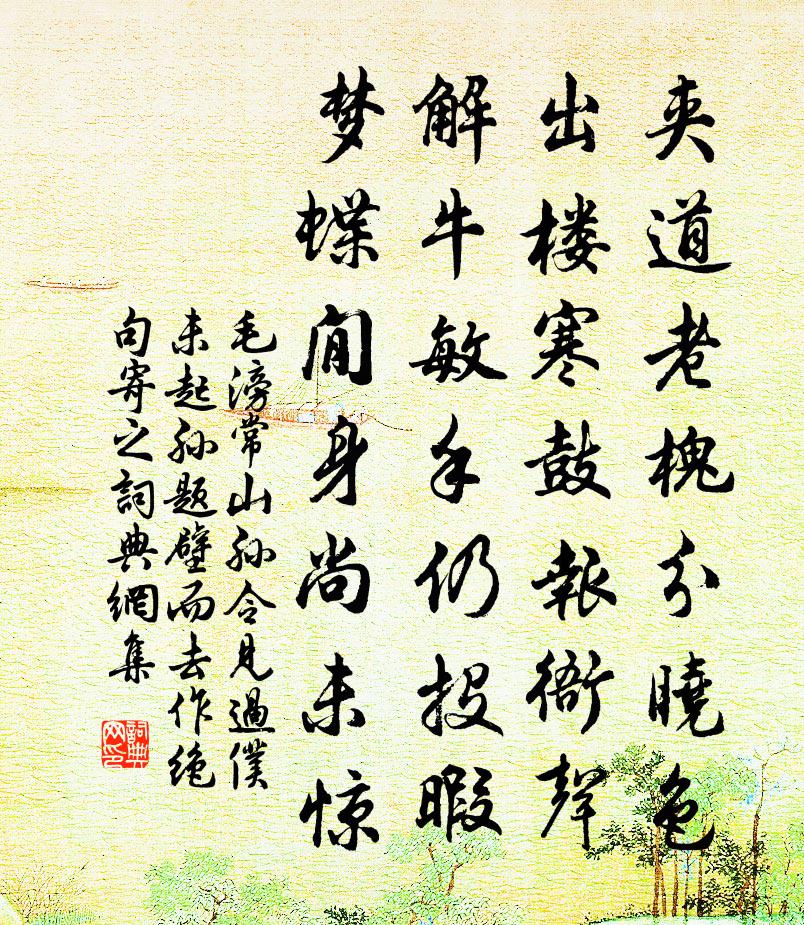 夹道老槐分曉色
出楼寒鼓報衙聲
解牛敏手仍投暇
梦蝶閒身尚未惊
毛滂常山孙令見過僕
未起孙题壁而去作绝
句寄之詞典網集
詞典网印